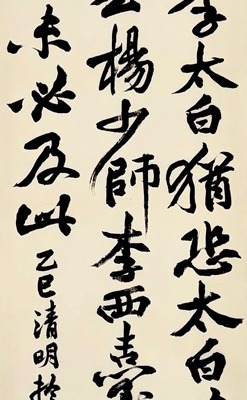 李太白猶恐太白
公楊少師李西臺
未必及此
乙巳清明於